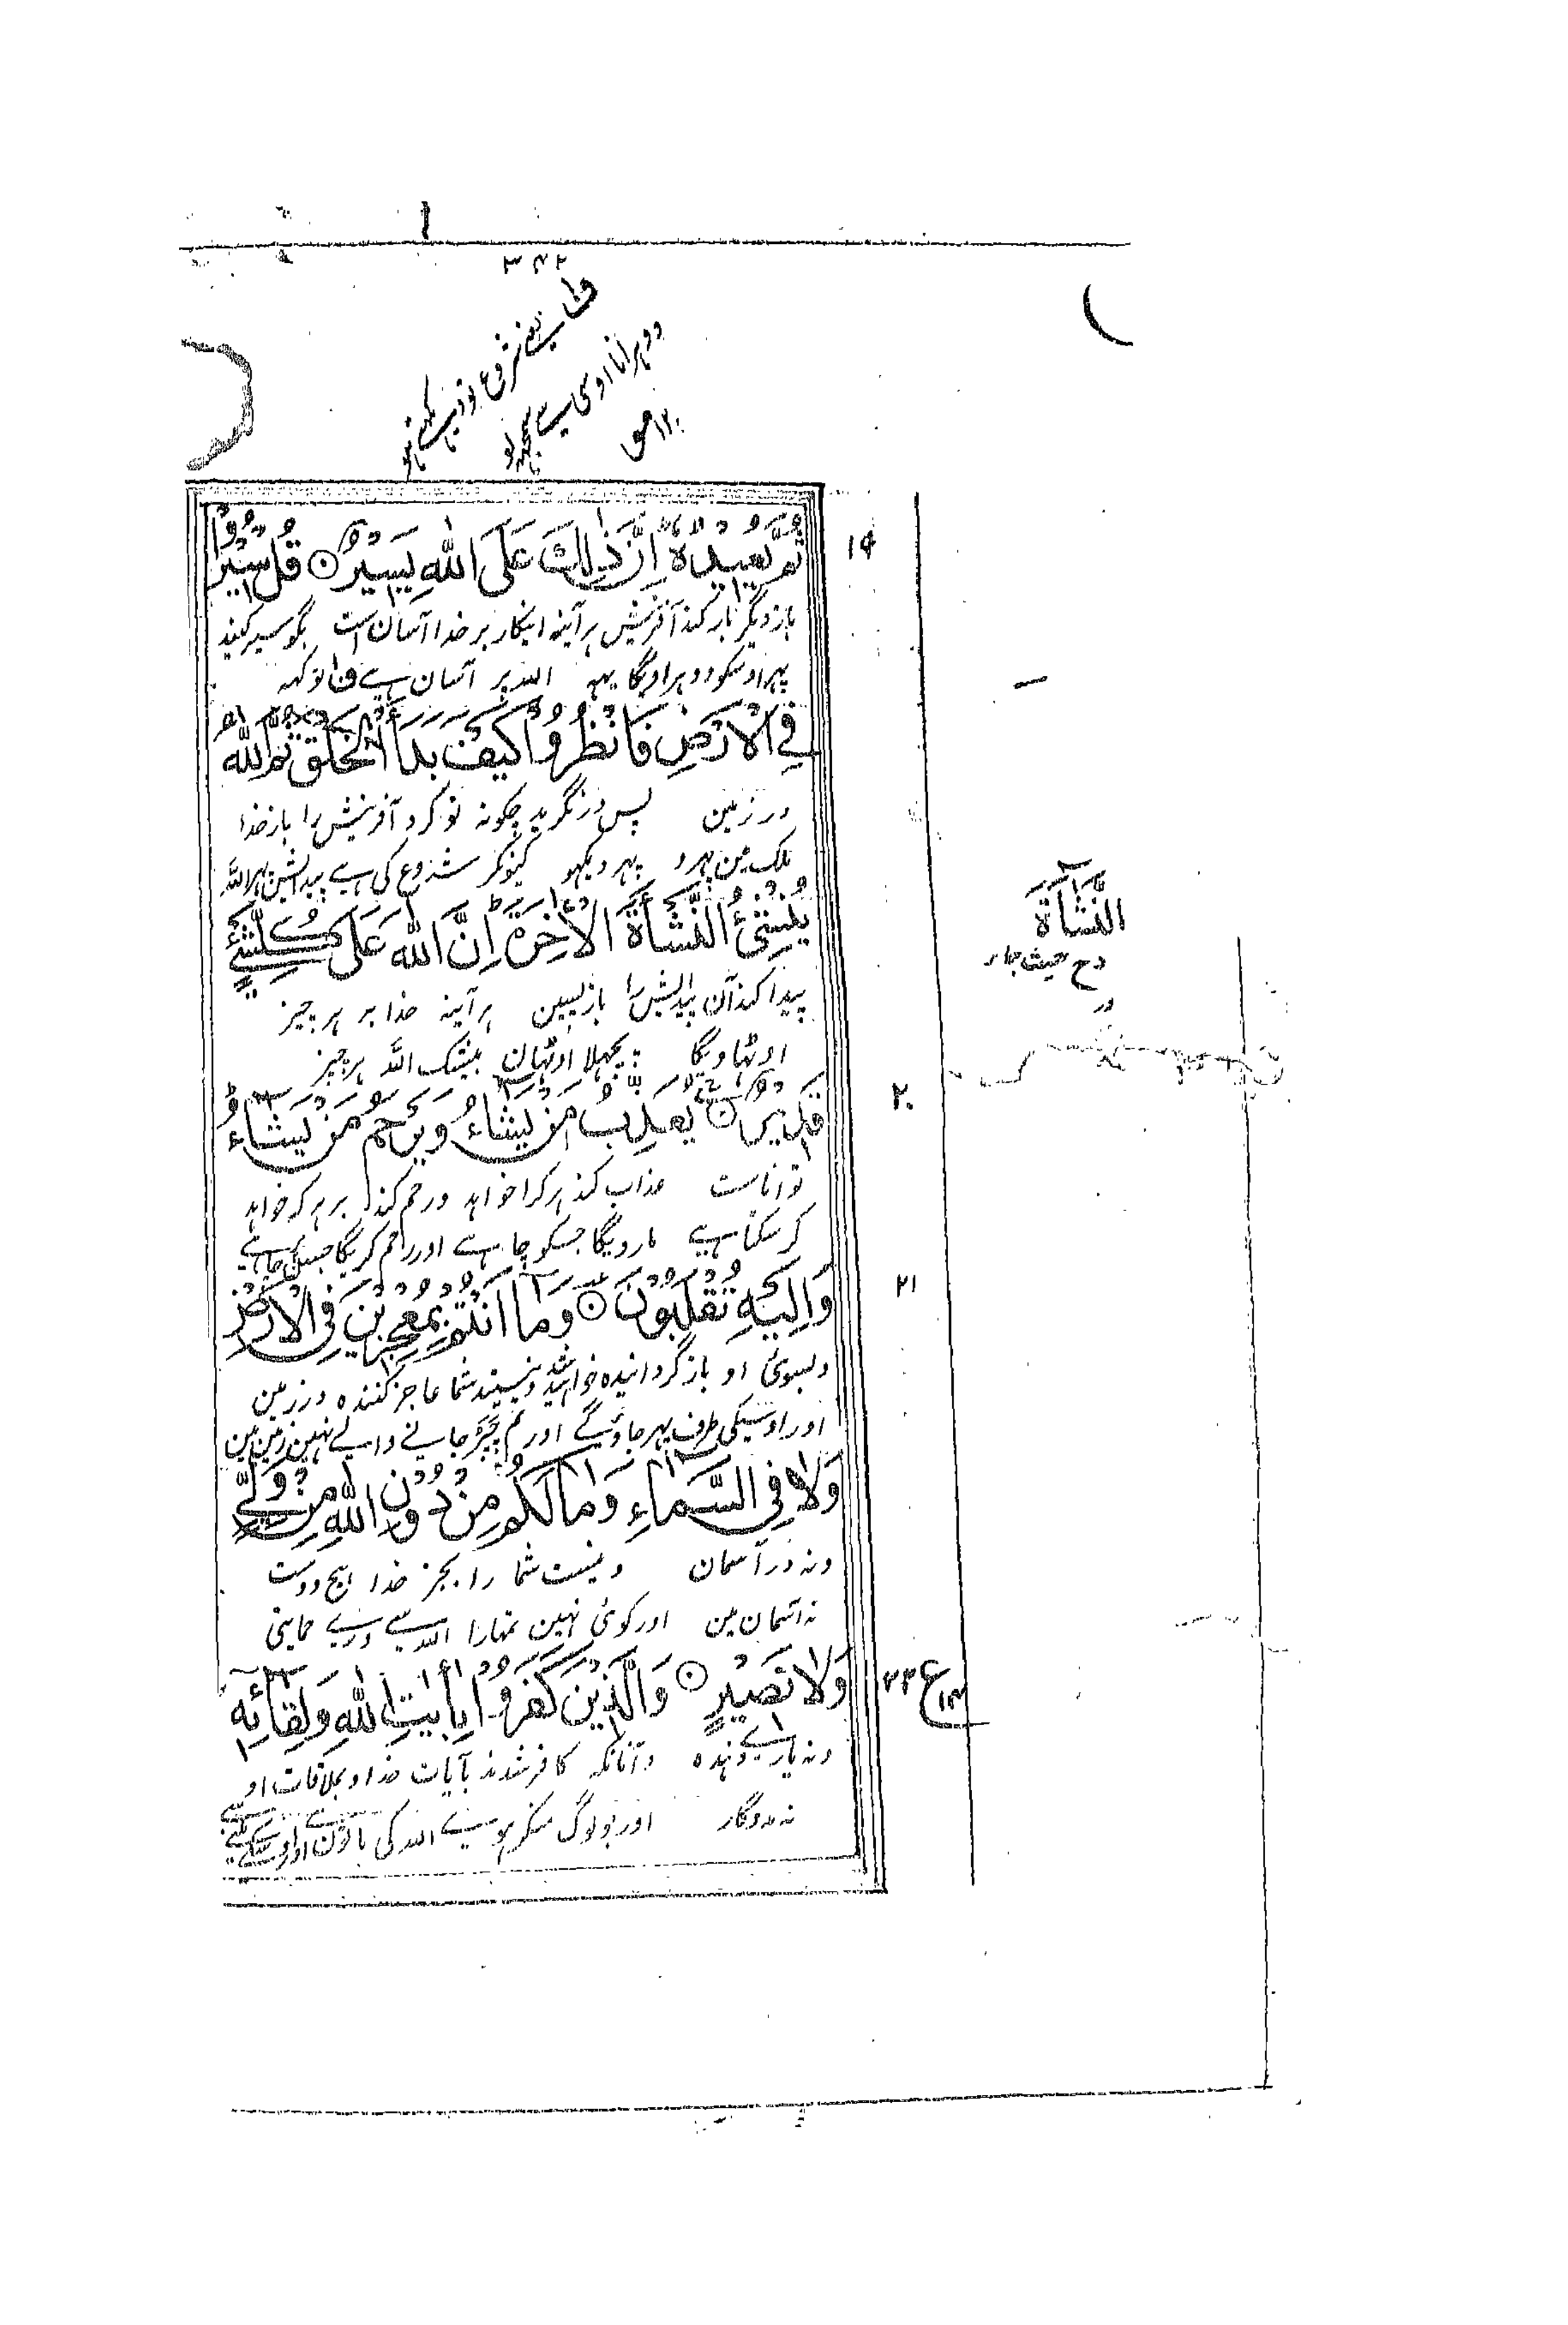 ۳۴۲
ف۱ یعنے شروع تو دیکھتے ہو
دوہرانا اوسی سے سمجھہ لو
۱۲ صق
ثُمَّ يُعِيدُهٗ اِنَّ ذٰلِكَ عَلَى اللّٰهِ يَسِيْرٌ ۝ قُلْ سِيْرُوْا
۱۹
باز دیگر بار کند آفرینش ہر آینہ اینکار بر خدا آسان است بگو سیر کنید
پہر اوسکو دوہراویگا یہہ اللہ پر آسان ہے ف۱ تو کہہ
فِي الْاَرْضِ فَانْظُرُوْا كَيْفَ بَدَاَ الْخَلْقَ ثُمَّ اللّٰهُ
در زمین پس در نگرید چگونہ نو کرد آفرینش را باز خدا
ملک مین پہرو پہر دیکہو کیونکر شروع کی ہے پیدایش پہر اللہ
يُنْشِئُ النَّشْاَةَ الْاٰخِرَةَ اِنَّ اللّٰهَ عَلٰى كُلِّ شَيْءٍ
النَّشَآءَةَ
دح حیث جار
پیدا کند آن پیدایش را بازپسین ہر آینہ خدا بر ہر چیز
اوٹہاویگا پچہلا اوٹہان بیشک اللہ ہر چیز
قَدِيْرٌ ۝ يُعَذِّبُ مَنْ يَّشَآءُ وَيَرْحَمُ مَنْ يَّشَآءُ
۲۰
تواناست عذاب کند ہر کرا خواہد و رحم کند بر ہر کہ خواہد
کر سکتا ہے مار دیگا جسکو چاہے اور رحم کریگا جسپر چاہے
وَاِلَيْهِ تُقْلَبُوْنَ ۝ وَمَا اَنْتُمْ بِمُعْجِزِيْنَ فِي الْاَرْضِ
۲۱
وبسوی او باز گردانیدہ خواہید شد و نیستید شما عاجز کنندہ در زمین
اور اوسیکی طرف پہر جاؤگے اور تم چہڑ جانے والے نہین زمین مین
وَلَا فِي السَّمَآءِ وَمَا لَكُمْ مِنْ دُوْنِ اللّٰهِ مِنْ وَّلِيٍّ
ونہ در آسمان و نیست شما را بجز خدا ہیچ دوست
نہ آسمان مین اور کوئی نہین تمہارا اللہ سے ورے حمایتی
وَلَا نَصِيْرٍ ۝ وَالَّذِيْنَ كَفَرُوْا بِاٰيٰتِ اللّٰهِ وَلِقَآئِهٖ
ع ۲۲
ونہ یاری دہندہ وآنانکہ کافر شدند بآیات خدا و بملاقات او
نہ مددگار اور جو لوگ منکر ہوے اللہ کی باتون سے اور اوسکے ملنے سے